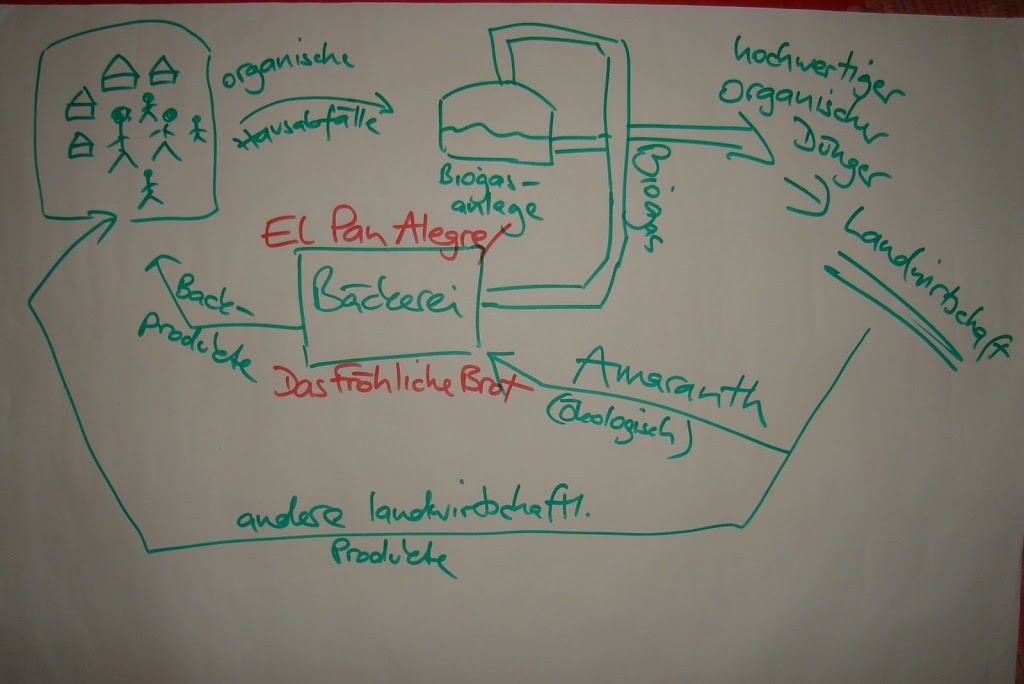 organische
Hausabfälle
Biogas-
anlage
Biogas
hochwertiger
organischer
Dünger
Landwirtschaft
El Pan Alegre
Bäckerei
Das Fröhliche Brot
Back-
produkte
Amaranth
(ökologisch)
andere landwirtschaftl.
Produkte